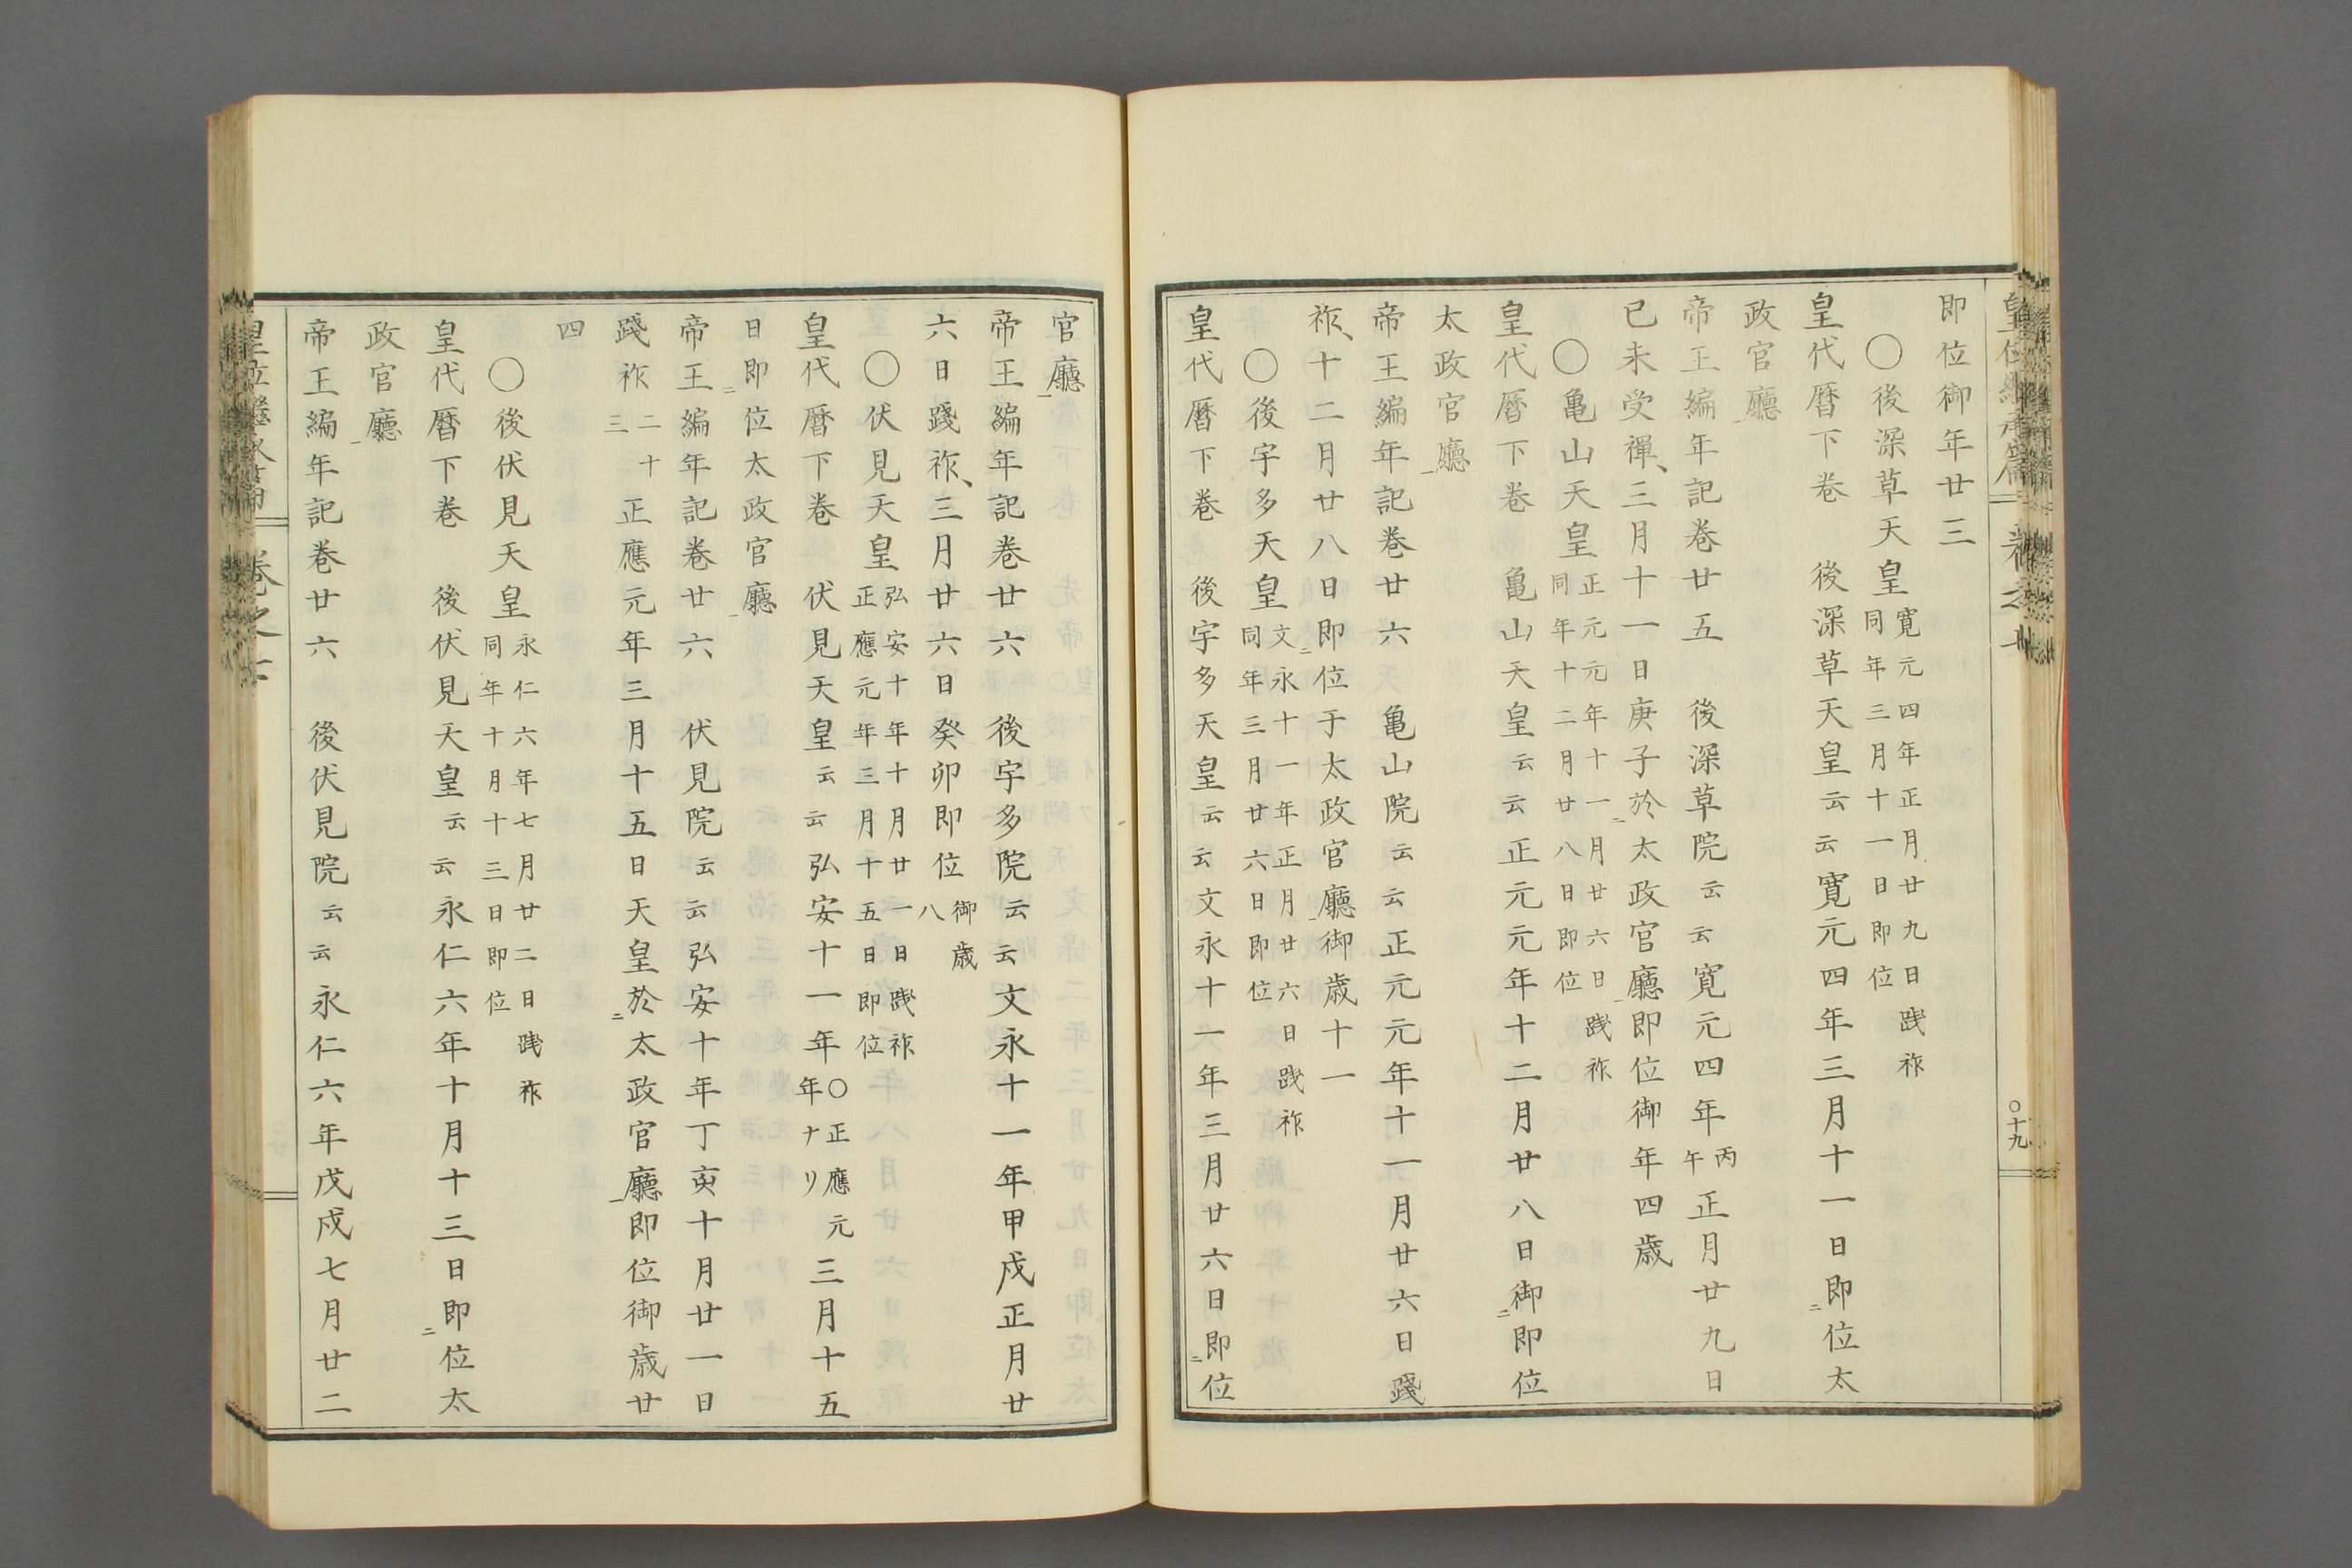 即位御年廿三
〇後深草天皇寛元四年正月廿九日踐祚同年三月十一日即位
皇代暦下巻　後深草天皇云云寛元四年三月十一日即二位太
政官廳一
帝王編年記巻廿五　後深草院云云寛元四年丙午正月廿九日
已未受禪、三月十一日庚子於二太政官廳一即位御年四歳
〇亀山天皇正元元年十一月廿六日踐祚同年十二月廿八日即位
皇代暦下巻　亀山天皇云云正元元年十二月廿八日御二即位
太政官廳一
帝王編年記巻廿六　亀山院云云正元元年十一月廿六日踐
祚、十二月廿八日即二位于太政官廳一御歳十一
〇後宇多天皇文永十一年正月廿六日踐祚同年三月廿六日即位
皇代暦下巻　後宇多天皇云云文永十一年三月廿六日即二位
官廳一
帝王編年記巻廿六　後宇多院云云文永十一年甲戌正月廿
六日踐祚、三月廿六日癸卯即位御歳八
〇伏見天皇弘安十年十月廿一日踐祚正應元年三月十五日即位
皇代暦下巻　伏見天皇云云弘安十一年〇正應元年ナリ三月十五
日即二位太政官廳一
帝王編年記巻廿六　伏見院云云弘安十年丁亥十月廿一日
踐祚二十三正應元年三月十五日天皇於二太政官廳一即位御歳廿
四
〇後伏見天皇永仁六年七月廿二日踐祚同年十月十三日即位
皇代暦下巻　後伏見天皇云云永仁六年十月十三日即二位太
政官廳一
帝王編年記巻廿六　後伏見院云云永仁六年戊戌七月廿二